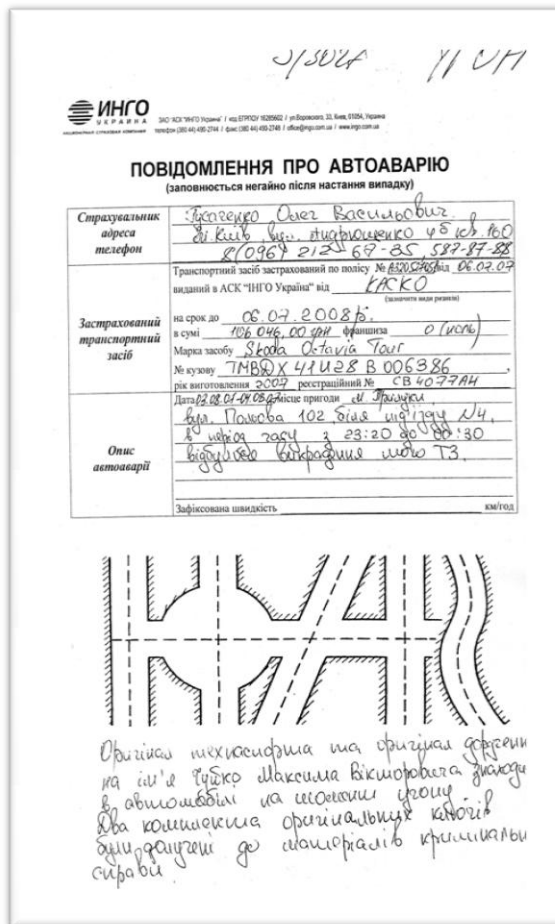 ИНГО
УКРАИНА
ЗАО "АСК "ИНГО Украина" / код ЕГРПОУ 16285602 / ул.Воровского, 33, Киев, 01054, Украина
телефон (380 44) 490-2744 / факс (380 44) 490-2748 / office@ingo.com.ua / www.ingo.com.ua
ПОВІДОМЛЕННЯ ПРО АВТОАВАРІЮ
(заповнюється негайно після настання випадку)
Страхувальник
адреса
телефон
Олег Васильович
м. Київ вул. кв. 160
8(096) 212-67-35, 587-87-88
Застрахований
транспортний
засіб
Транспортний засіб застрахований по полісу № від 06.07.07
виданий в АСК "ІНГО Україна" від КАСКО
на срок до 06.07.2008р.
в сумі 106 046,00 грн франшиза 0 (ноль)
Марка засобу Skoda Octavia Tour
№ кузову TMBDX41U28B006386
рік виготовлення 2007 реєстраційний № СВ4077АН
Опис
автоаварії
Дата місце пригоди м. Прилуки,
вул. Польова 102 біля під'їзду №4,
в період часу з 23:20 до 00:30
відбулося викрадення мого ТЗ.
Зафіксована швидкість км/год
Оригінал техпаспорта та оригінал
на ім'я Максима Вікторовича
в автомобілі на момент угону.
Два комплекта оригінальних ключів
були долучені до матеріалів
справи.